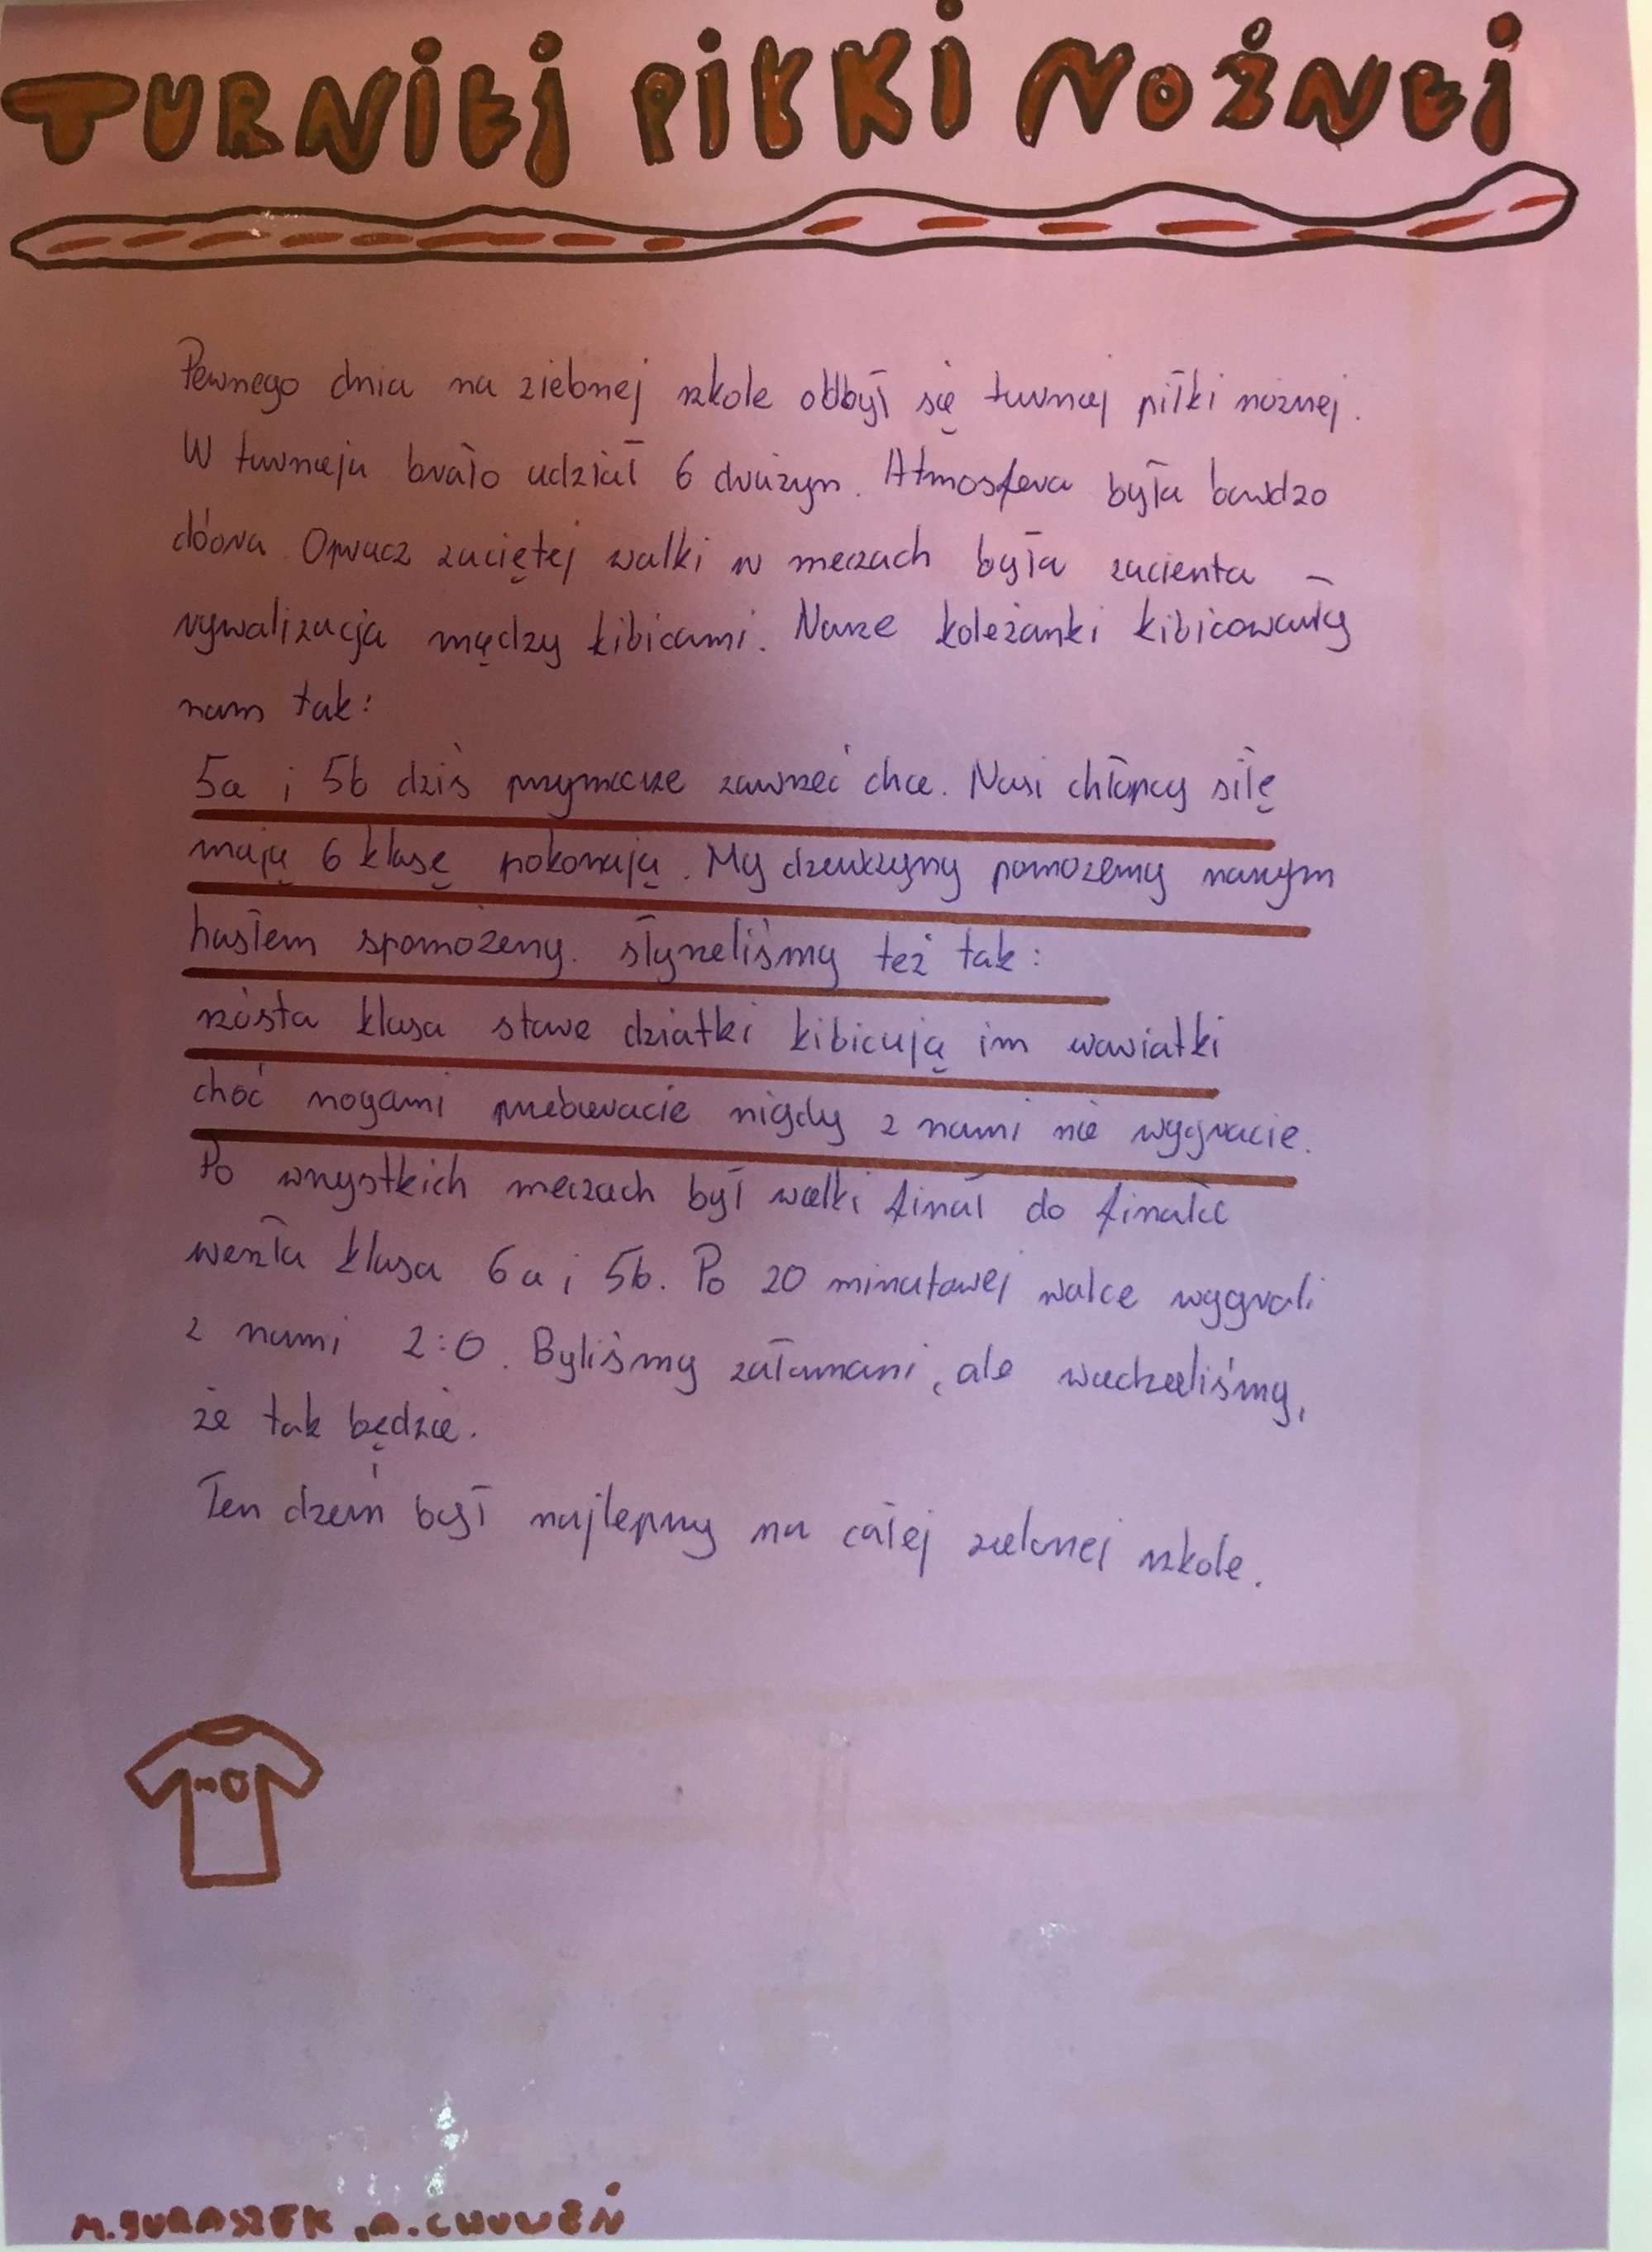 TURNIEJ PIŁKI NOŻNEJ
Pewnego dnia na zielonej szkole odbył się turniej piłki nożnej.
W turnieju brało udział 6 drużyn. Atmosfera była bardzo
dobra. Opracz zaciętej walki w meczach była zacienta -
rywalizacja między kibicami. Nasze koleżanki kibicowały
nam tak:
5a i 5b dziś przymierze zawrzeć chce. Nasi chłopcy siłę
mają 6 klasę pokonają. My dziewczyny pomożemy naszym
hasłem spomożemy. słyszeliśmy też tak:
szósta klasa stare dziatki kibicują im wariatki
choć nogami przebieracie nigdy z nami nie wygracie.
Po wszystkich meczach był wielki finał do finału
weszła klasa 6a i 5b. Po 20 minutowej walce wygrali
z nami 2:0. Byliśmy załamani, ale wiedzieliśmy,
że tak będzie.
Ten dzień był najlepszy na całej zielonej szkole.
M. JURASZEK, A.